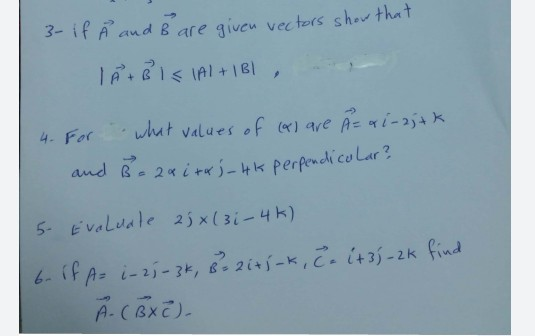 3- if A⃗ and B⃗ are given vectors show that
|A⃗ + B⃗| ≤ |A| + |B| ,
4- For what values of (α) are A⃗ = αi - 2j + k
and B⃗ = 2αi + αj - 4k perpendicular?
5- Evaluate 2j × (3i - 4k)
6- if A = i - 2j - 3k, B⃗ = 2i + j - k, C⃗ = i + 3j - 2k find
A⃗ - (B⃗ × C⃗) -